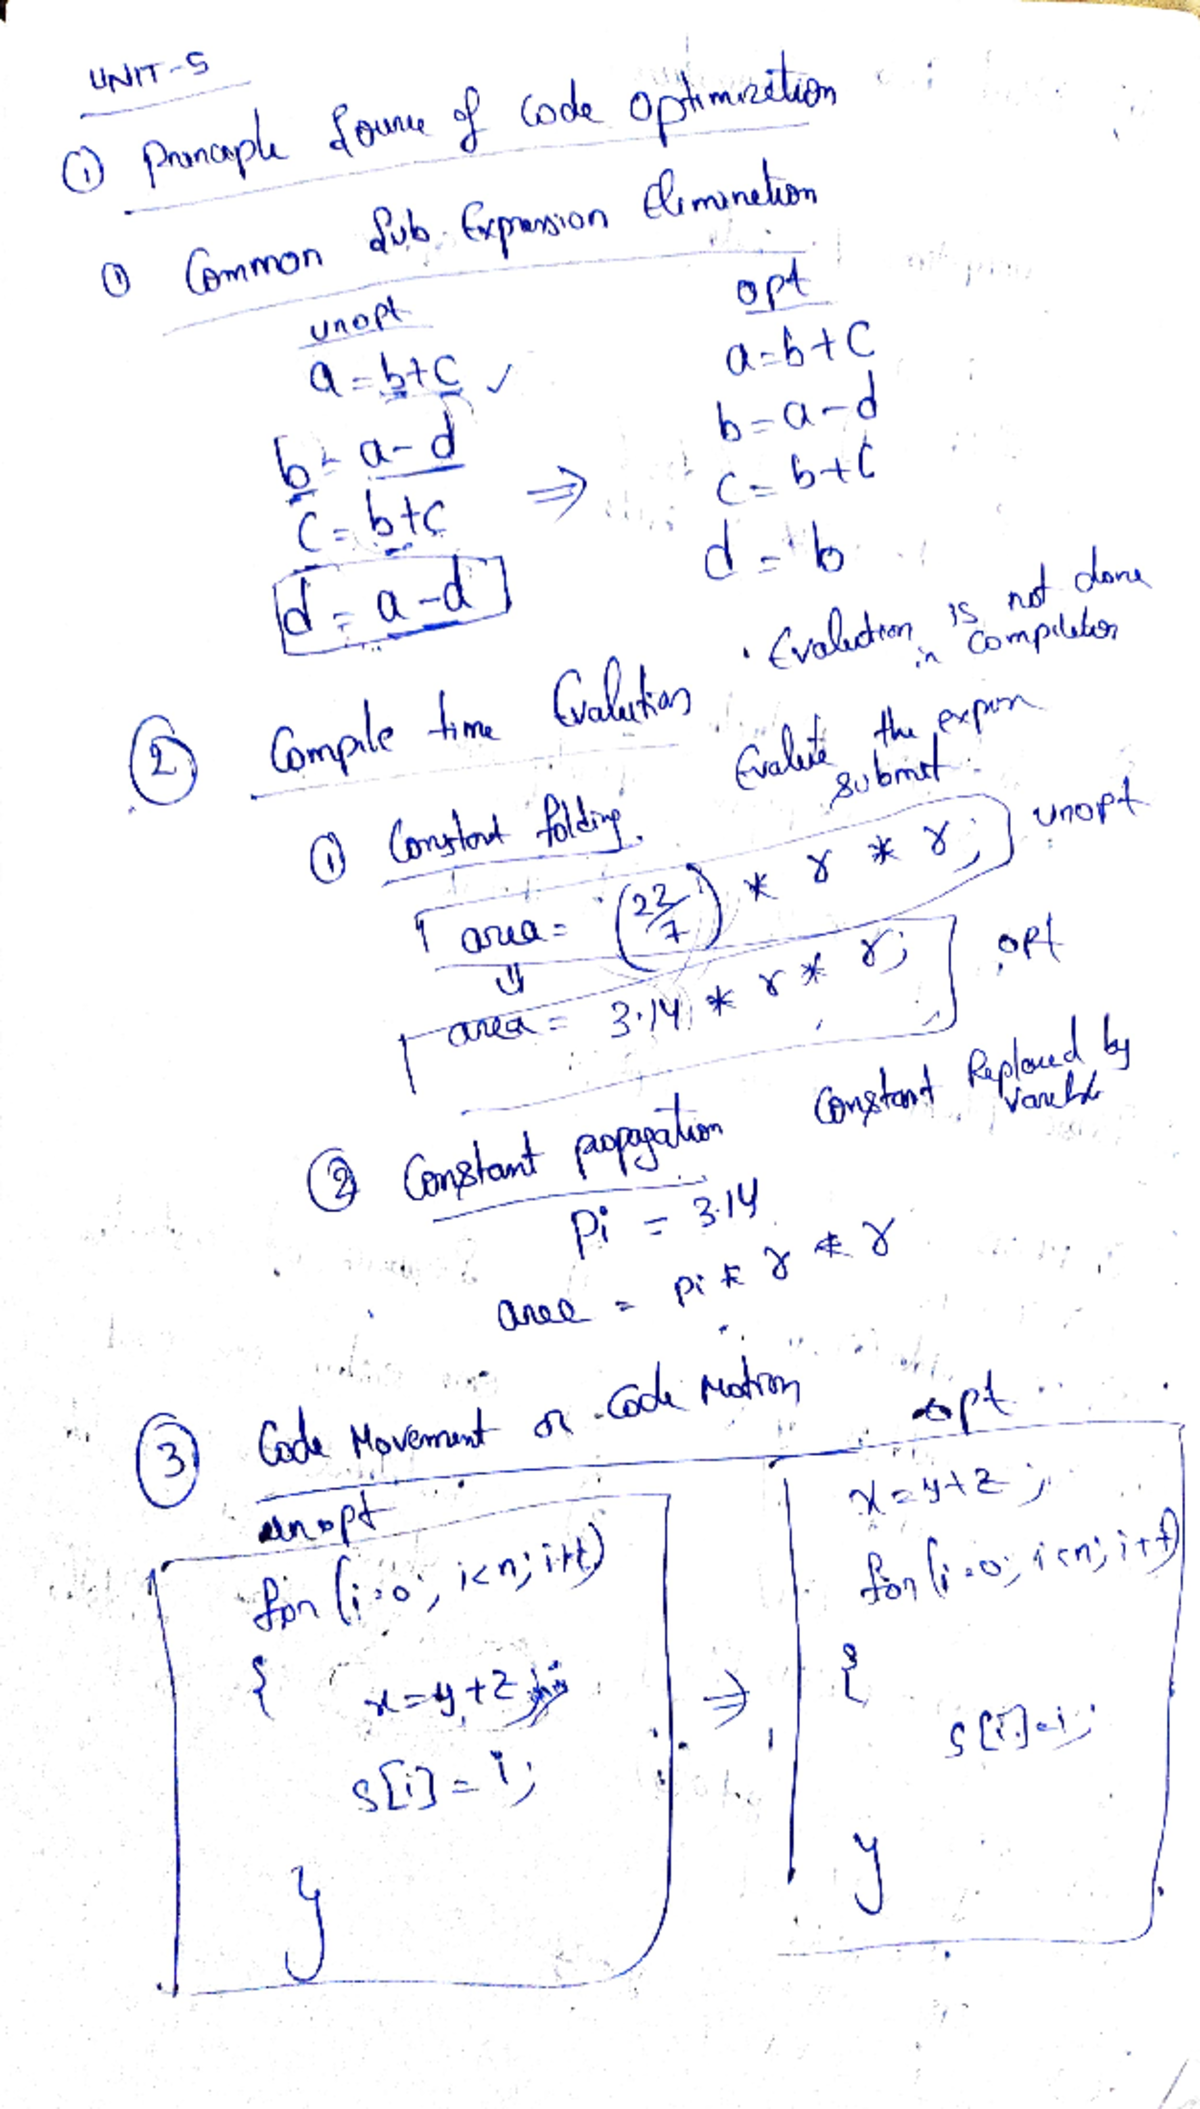 UNIT-5
① Principle Source of Code Optimization
① Common Sub Expression Elimination
unopt
a = b+c ✓
b = a-d
c = b+c
d = a-d
⇒
opt
a=b+c
b=a-d
c=b+c
d = b
② Compile time Evalution
• Evalution is not done
in Compilation
① Constant folding.
Evalute the expresn
submit.
area = (22/7) * r * r; unopt
⇓
area = 3.14 * r * r; opt
② Constant propagation
Constant Replaced by
Variable
Pi = 3.14
area = pi * r * r
③ Code Movement or Code Motion
unopt
for (i=0; i<n; i++)
{ x=y+z;
s[i] = i;
}
⇒
opt
x=y+z;
for (i=0; i<n; i++)
{
s[i]=i;
}